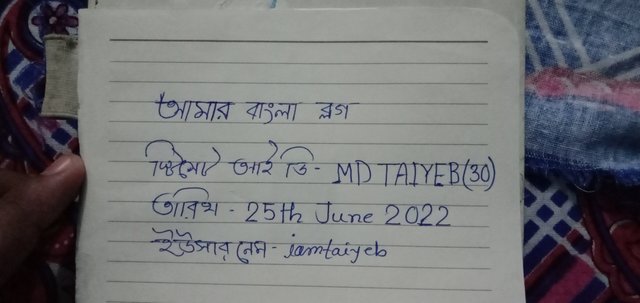 আমার বাংলা ব্লগ
স্টিমেট আই ডি - MD TAIYEB (30)
তারিখ - 25th June 2022
ইউসার নেম - iamtaiyeb